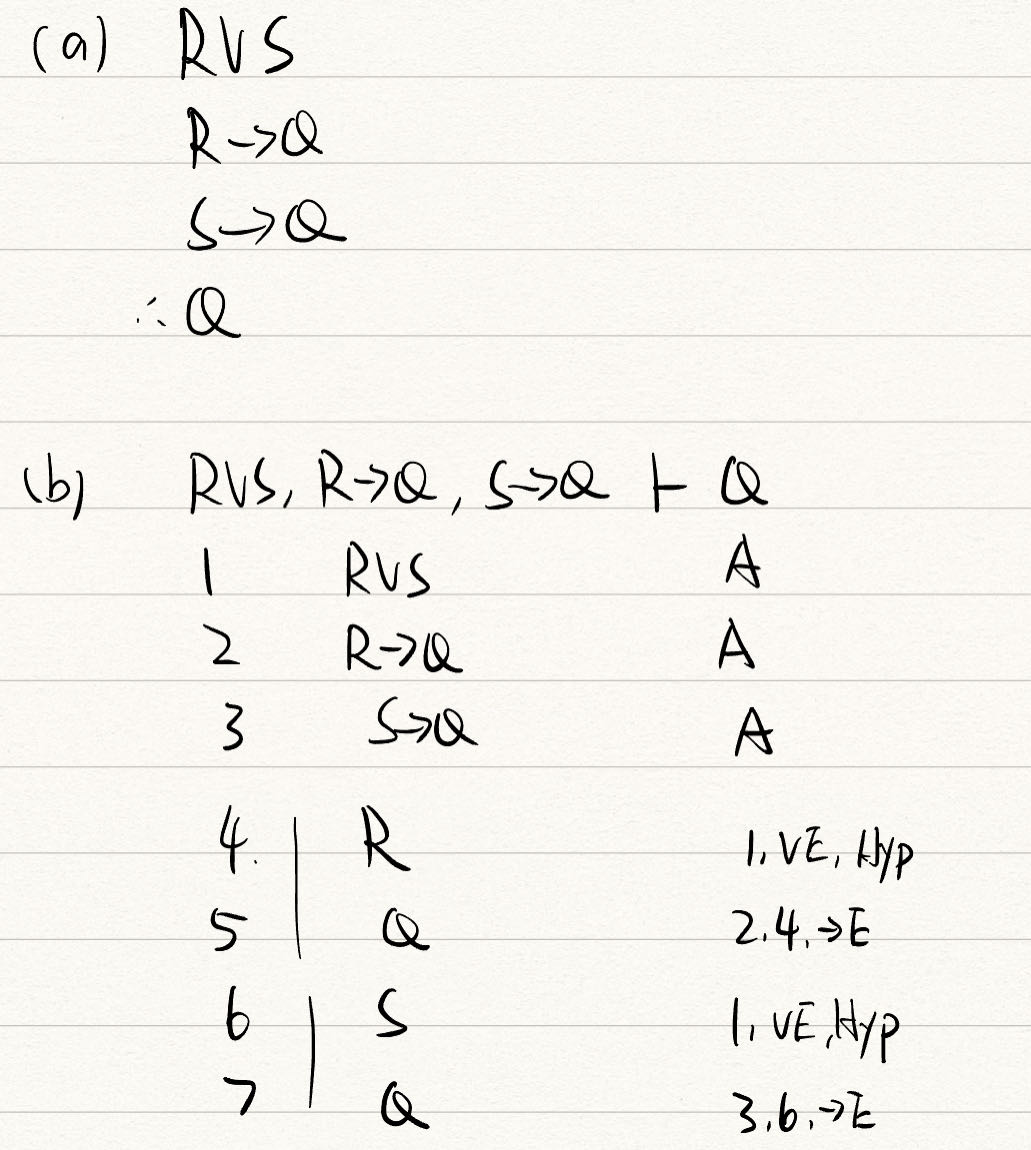 (a) R∨S
R→Q
S→Q
∴ Q
(b) R∨S, R→Q, S→Q ⊢ Q
1 R∨S A
2 R→Q A
3 S→Q A
4. R 1, ∨E, Hyp
5 Q 2.4. →E
6 S 1, ∨E, Hyp
7 Q 3.6. →E